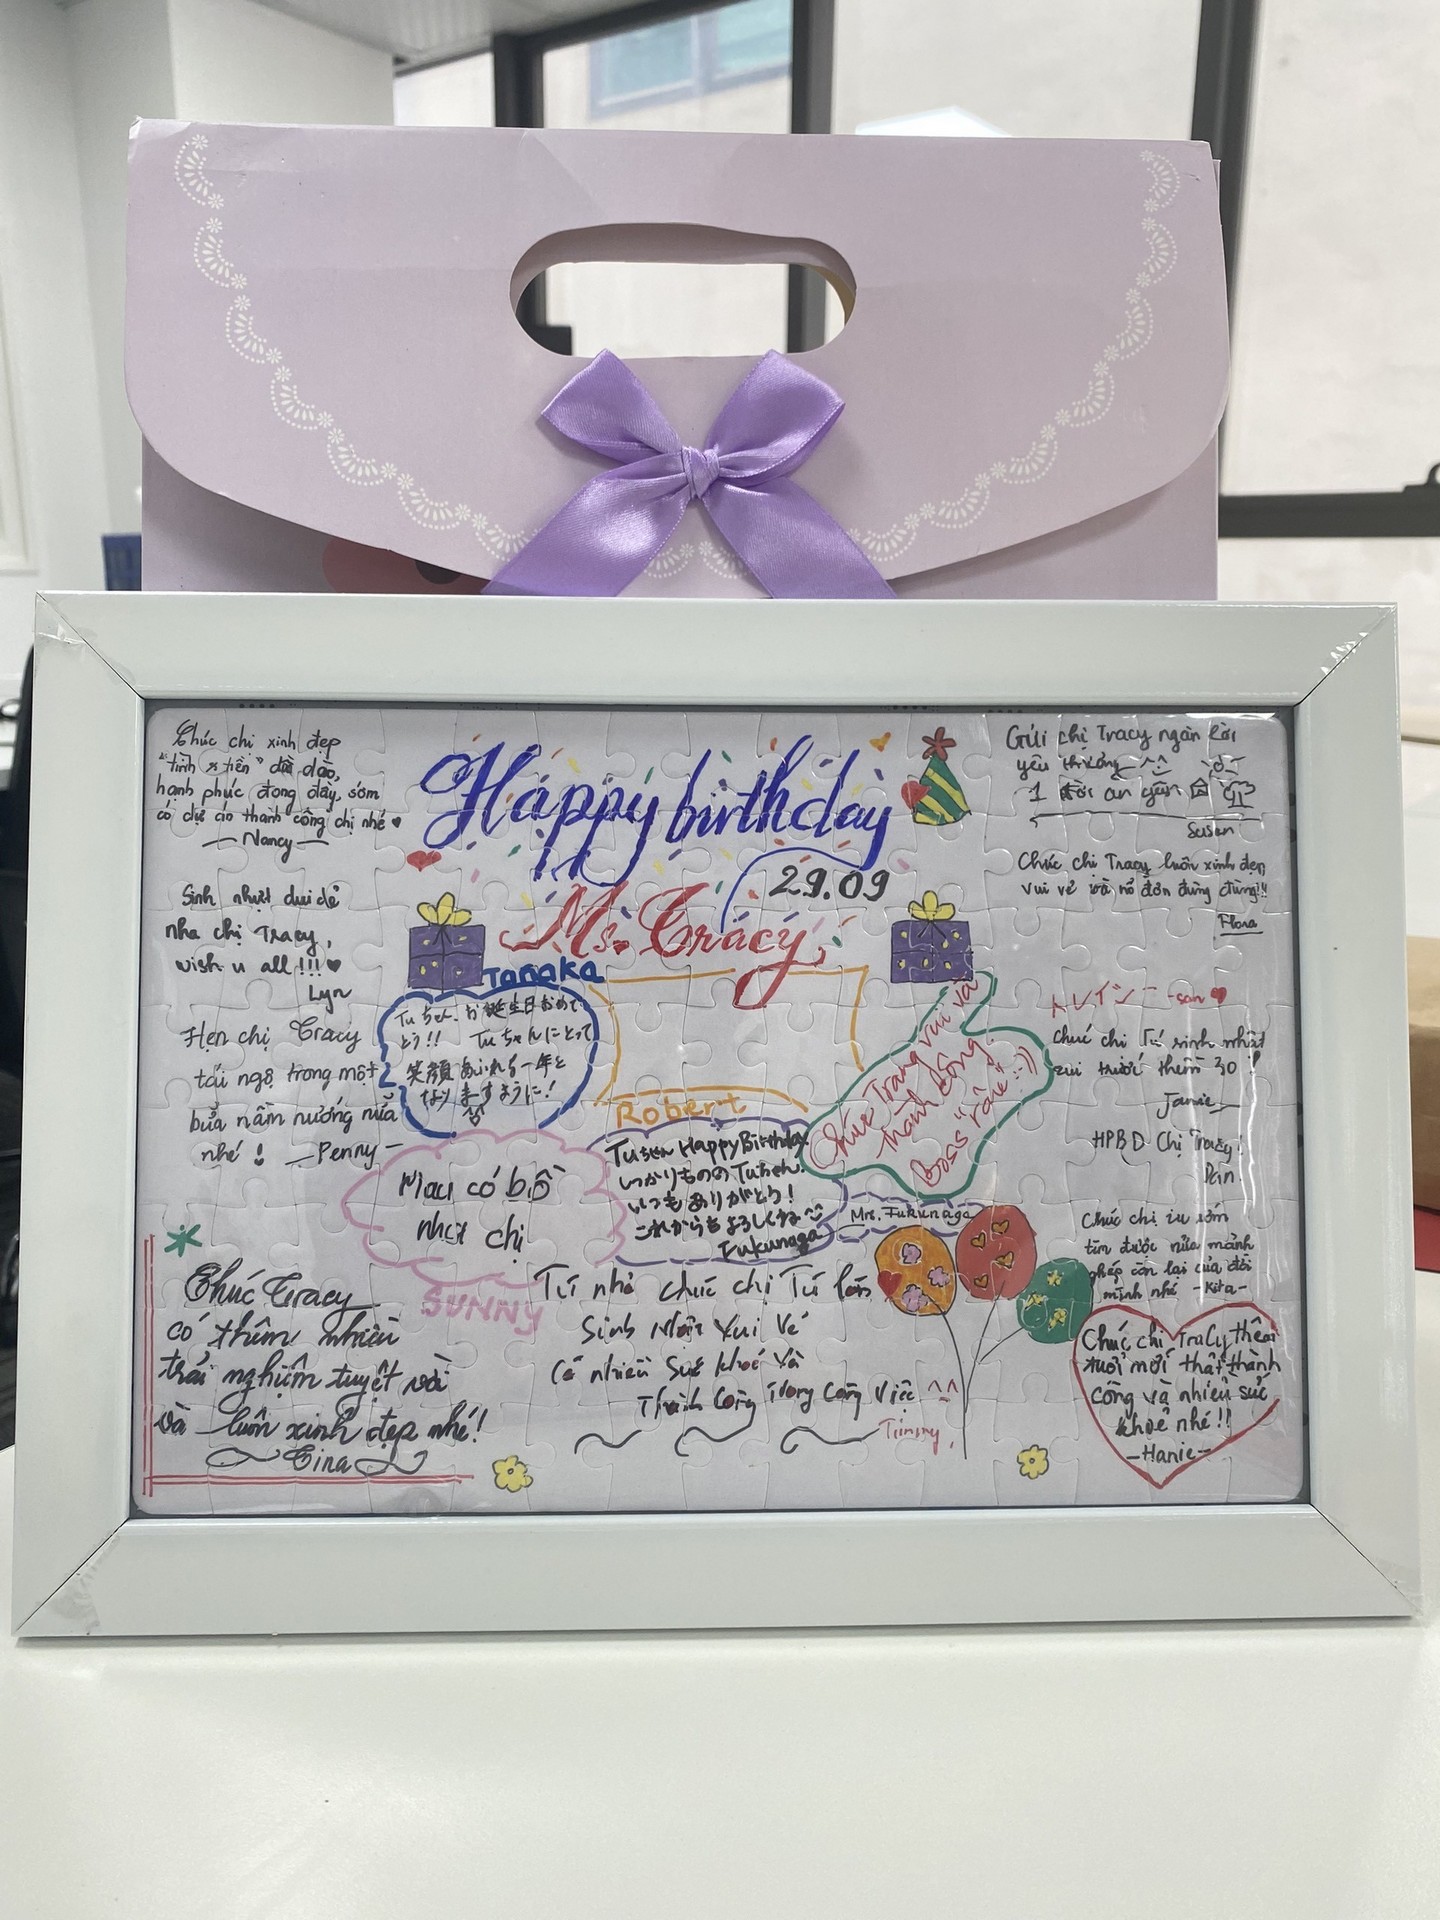 Happy birthday
29.09
Ms. Tracy
Chúc chị xinh đẹp
"tình x tiền" dồi dào,
hạnh phúc đong đầy, sớm
có dự án thành công chị nhé
Nancy
Sinh nhật dui dẻ
nha chị Tracy,
wish u all !!!
Lyn
Hẹn chị Tracy
tái ngộ trong một
bữa nầm nướng nữa
nhé !
Penny
Chúc Tracy
có thêm nhiều
trải nghiệm tuyệt vời
và luôn xinh đẹp nhé!
Tina
Tanaka
Tuちゃん、お誕生日おめで
とう!! Tuちゃんにとって
笑顔あふれる一年と
なりますように!
Mau có bồ
nha chị
SUNNY
Robert
Tuちゃん Happy Birthday.
しっかりもののTuちゃん.
いつもありがとう!
これからもよろしくね
Fukunaga
Mrs. Fukunaga
Chúc Trang vui và
thành công.
Boss "râu" :))
Tú nhỏ chúc chị Tú lớn
Sinh Nhật Vui Vẻ
Có nhiều Sức khoẻ và
Thành Công trong Công Việc ^^
Timmy.
Gửi chị Tracy ngàn lời
yêu thương ^^
1 đời an yên
Susan
Chúc chị Tracy luôn xinh đẹp,
vui vẻ và nổ đơn đùng đùng!!
Flora
トレイシー -san
Chúc chị Tú sinh nhật
zui trước thềm 30 !
Janie
HPBD Chị Tracy!
Chúc chị iu sớm
tìm được nửa mảnh
ghép còn lại của đời
mình nhé -Kita-
Chúc chị Tracy thêm
tuổi mới thật thành
công và nhiều sức
khoẻ nhé !!
-Hanie-